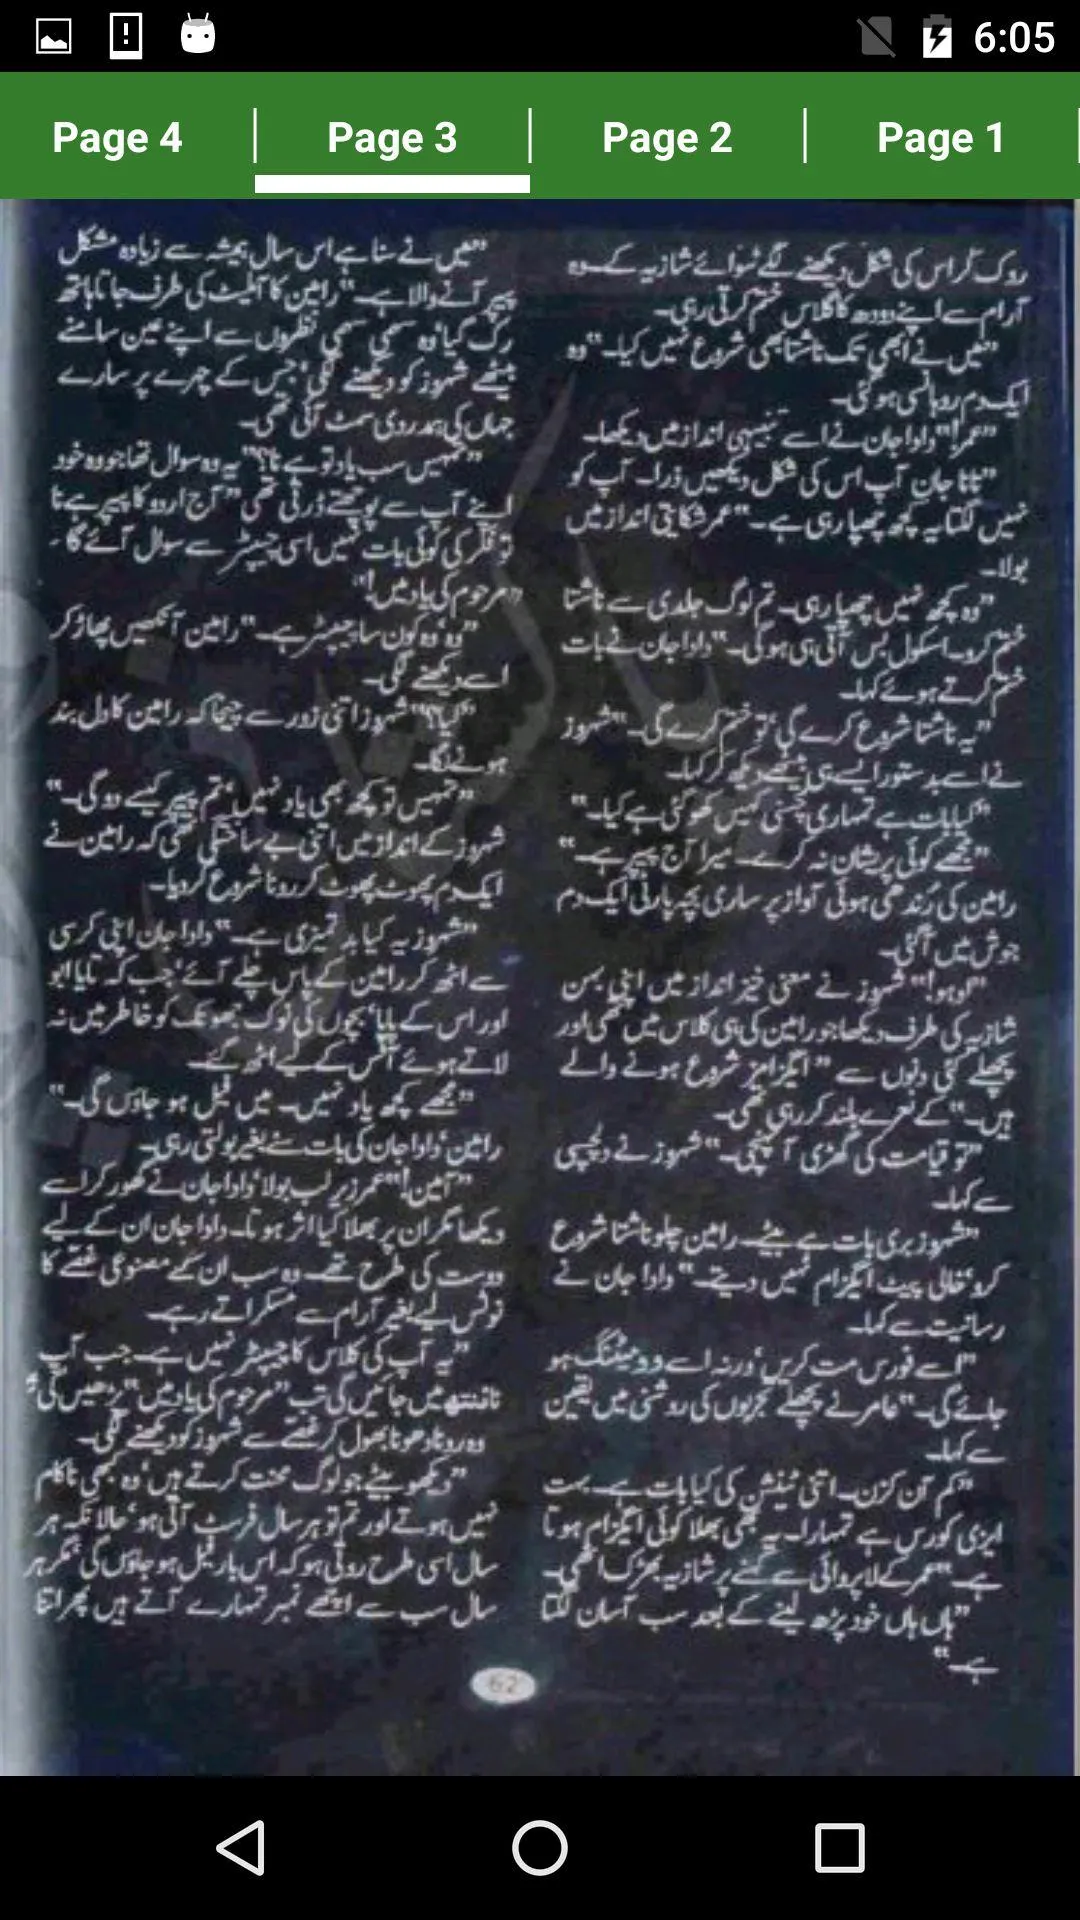 6:05
Page 4
Page 3
Page 2
Page 1
روک کر اس کی شکل دیکھنے لگے سوائے شازیہ کے۔ وہ
آرام سے اپنے دودھ کا گلاس ختم کرتی رہی۔
”میں نے ابھی تک ناشتا بھی شروع نہیں کیا۔“ وہ
ایک دم روہانسی ہو گئی۔
”عمر!“ دادا جان نے اسے تنبیہی انداز میں دیکھا۔
”نانا جان آپ اس کی شکل دیکھیں ذرا۔ آپ کو
نہیں لگتا یہ کچھ چھپا رہی ہے۔“ عمر شکایتی انداز میں
بولا۔
”وہ کچھ نہیں چھپا رہی۔ تم لوگ جلدی سے ناشتا
ختم کرو۔ اسکول بس آتی ہی ہو گی۔“ دادا جان نے بات
ختم کرتے ہوئے کہا۔
”یہ ناشتا شروع کرے گی‘ تو ختم کرے گی۔“ شہروز
نے اسے بدستور ایسے ہی بیٹھے دیکھ کر کہا۔
”کیا بات ہے تمہاری چسنی کہیں کھو گئی ہے کیا۔“
”مجھے کوئی پریشان نہ کرے۔ میرا آج پیپر ہے۔“
رامین کی رُندھی ہوئی آواز پر ساری بچہ پارٹی ایک دم
جوش میں آ گئی۔
”اوہو!“ شہروز نے معنی خیز انداز میں اپنی بہن
شازیہ کی طرف دیکھا جو رامین کی ہی کلاس میں تھی اور
پچھلے کئی دنوں سے ”ایگزامز شروع ہونے والے
ہیں۔“ کے نعرے بلند کر رہی تھی۔
”تو قیامت کی گھڑی آ پہنچی۔“ شہروز نے دلچسپی
سے کہا۔
”شہروز بری بات ہے بیٹے۔ رامین چلو ناشتا شروع
کرو‘ خالی پیٹ ایگزام نہیں دیتے۔“ دادا جان نے
رسانیت سے کہا۔
”اسے فورس مت کریں‘ ورنہ اسے وومیٹنگ ہو
جائے گی۔“ عامر نے پچھلے تجربوں کی روشنی میں یقین
سے کہا۔
”کم آن کزن۔ اتنی ٹینشن کی کیا بات ہے۔ بہت
ایزی کورس ہے تمہارا۔ یہ بھی بھلا کوئی ایگزام ہوتا
ہے۔“ عمر کے لاپروائی سے کہنے پر شازیہ بھڑک اٹھی۔
”ہاں ہاں خود پڑھ لینے کے بعد سب آسان لگتا
ہے۔“
”میں نے سنا ہے اس سال ہمیشہ سے زیادہ مشکل
پیپر آنے والا ہے۔“ رامین کا آملیٹ کی طرف جاتا ہاتھ
رک گیا‘ وہ سہمی سہمی نظروں سے اپنے عین سامنے
بیٹھے شہروز کو دیکھنے لگی‘ جس کے چہرے پر سارے
جہاں کی ہمدردی سمٹ آئی تھی۔
”تمہیں سب یاد تو ہے نا؟“ یہ وہ سوال تھا جو وہ خود
اپنے آپ سے پوچھتے ڈرتی تھی ”آج اردو کا پیپر ہے نا
تو فکر کی کوئی بات نہیں اسی چیپٹر سے سوال آئے گا۔
”مرحوم کی یاد میں!“
”وہ‘ وہ کون سا چیپٹر ہے۔“ رامین آنکھیں پھاڑ کر
اسے دیکھنے لگی۔
”کیا؟“ شہروز اتنی زور سے چیخا کہ رامین کا دل بند
ہونے لگا۔
”تمہیں تو کچھ بھی یاد نہیں‘ تم پیپر کیسے دو گی۔“
شہروز کے انداز میں اتنی بے ساختگی تھی کہ رامین نے
ایک دم پھوٹ پھوٹ کر رونا شروع کر دیا۔
”شہروز یہ کیا بدتمیزی ہے۔“ دادا جان اپنی کرسی
سے اٹھ کر رامین کے پاس چلے آئے‘ جب کہ تایا ابو
اور اس کے پاپا‘ بچوں کی نوک جھونک کو خاطر میں نہ
لاتے ہوئے آفس کے لیے اٹھ گئے۔
”مجھے کچھ یاد نہیں۔ میں فیل ہو جاؤں گی۔“
رامین‘ دادا جان کی بات سنے بغیر بولتی رہی۔
”آمین!“ عمر زیر لب بولا‘ دادا جان نے گھور کر اسے
دیکھا مگر ان پر بھلا کیا اثر ہوتا۔ دادا جان ان کے لیے
دوست کی طرح تھے۔ وہ سب ان کے مصنوعی غصے کا
نوٹس لیے بغیر آرام سے مسکراتے رہے۔
”یہ آپ کی کلاس کا چیپٹر نہیں ہے۔ جب آپ
نائنتھ میں جائیں گی تب ”مرحوم کی یاد میں“ پڑھیں گی“
وہ رونا دھونا بھول کر غصے سے شہروز کو دیکھنے لگی۔
”دیکھو بیٹے جو لوگ محنت کرتے ہیں‘ وہ کبھی ناکام
نہیں ہوتے اور تم تو ہر سال فرسٹ آتی ہو‘ حالانکہ ہر
سال اسی طرح روتی ہو کہ اس بار فیل ہو جاؤں گی‘ مگر ہر
سال سب سے اچھے نمبر تمہارے آتے ہیں پھر اتنا
62